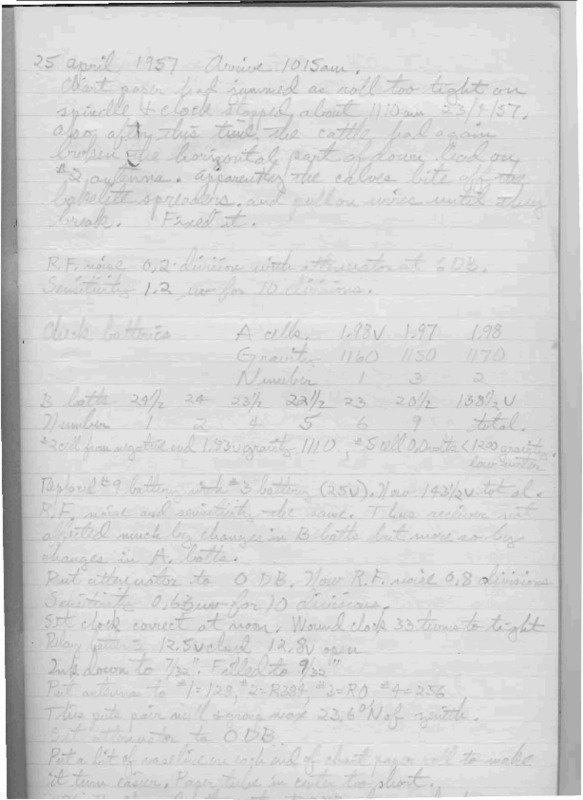 25 April 1957 Arrive 1015am.
Chart paper had jammed as roll too tight on
spindle & clock stopped about 1110am 23/4/57.
Also after this time the cattle had again
broken the horizontal part of down lead on
#2 antenna. Apparently the calves bite off the
bakelite spreaders and pull on wires until they
break. Fixed it.
R.F. noise 0.2 division with attenuator at 6 DB.
Sensitivity 1.2 uv for 10 divisions.
Check batteries A cells. 1.98V 1.97 1.98
Gravity 1160 1150 1170
Number 1 3 2
B batts 24½ 24 23½ 22½ 23 20½ 138½V
Number 1 2 4 5 6 9 total.
#2 cell from negative end 1.93V gravity 1110, #5 cell volts <1200 gravity.
low water
Replaced #9 battery with #3 battery (25V). Now 143½V total.
R.F. noise and sensitivity the same. Thus receiver not
affected much by changes in B batts but more so by
changes in A. batts.
Put attenuator to 0 DB. Now R.F. noise 0.8 divisions
Sensitivity 0.63uv for 10 divisions.
Set clock correct at noon. Wound clock 33 turns to tight
Relay battery 12.5V closed 12.8V open
Ink down to 7/32". Filled to 9/32"
Put antennas to #1=128, #2=R384, #3=R0 #4=256
This puts pair max 23.6°N of zenith.
Set attenuator to 0 DB.
Put a bit of vaseline on each end of chart paper roll to make
it turn easier. Paper tube in center too short.